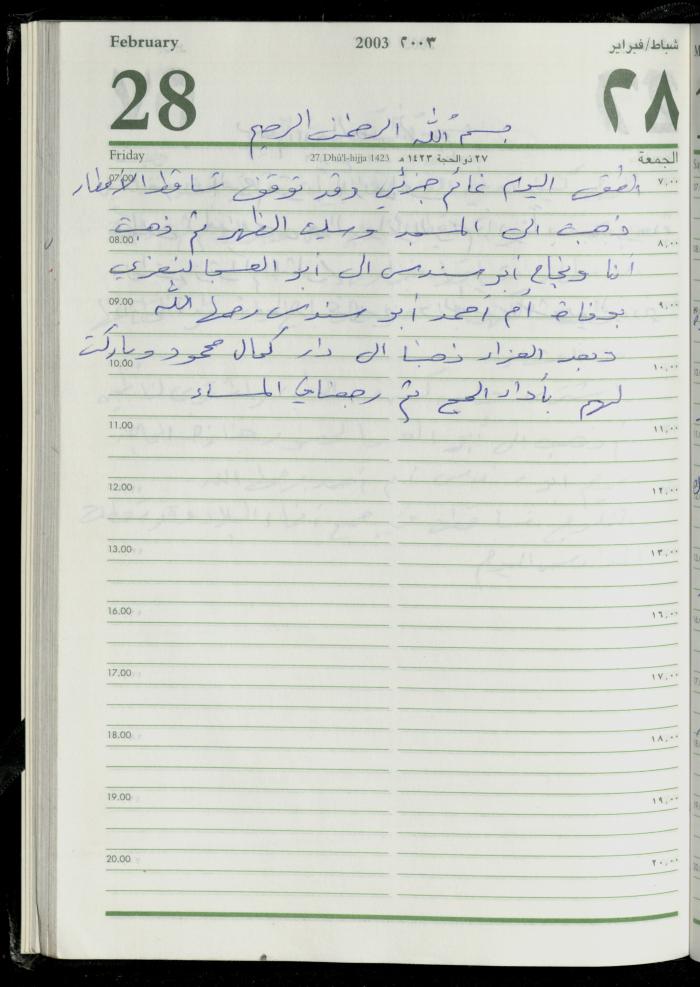 February 2003 ٢٠٠٣ شباط/فبراير
28 ٢٨
بسم الله الرحمن الرحيم
Friday 27 Dhū'l-hijja 1423 ٢٧ ذو الحجة ١٤٢٣ هـ الجمعة
07.00 ٧,٠٠
الطقس اليوم غائم جزئي وقد توقف تساقط الأمطار
ذهبت الى المسجد وصليت الظهر ثم ذهبت
08.00 ٨,٠٠
أنا ونجاح أبو سندس الى أبو العسجا لنعزي
09.00 ٩,٠٠
بوفاة أم أحمد أبو سندس رحمها الله
وبعد العزاء ذهبنا الى دار كمال محمود وباركت
10.00 ١٠,٠٠
لهم بأداء الحج ثم رجعنا في المساء
11.00 ١١,٠٠
12.00 ١٢,٠٠
13.00 ١٣,٠٠
16.00 ١٦,٠٠
17.00 ١٧,٠٠
18.00 ١٨,٠٠
19.00 ١٩,٠٠
20.00 ٢٠,٠٠